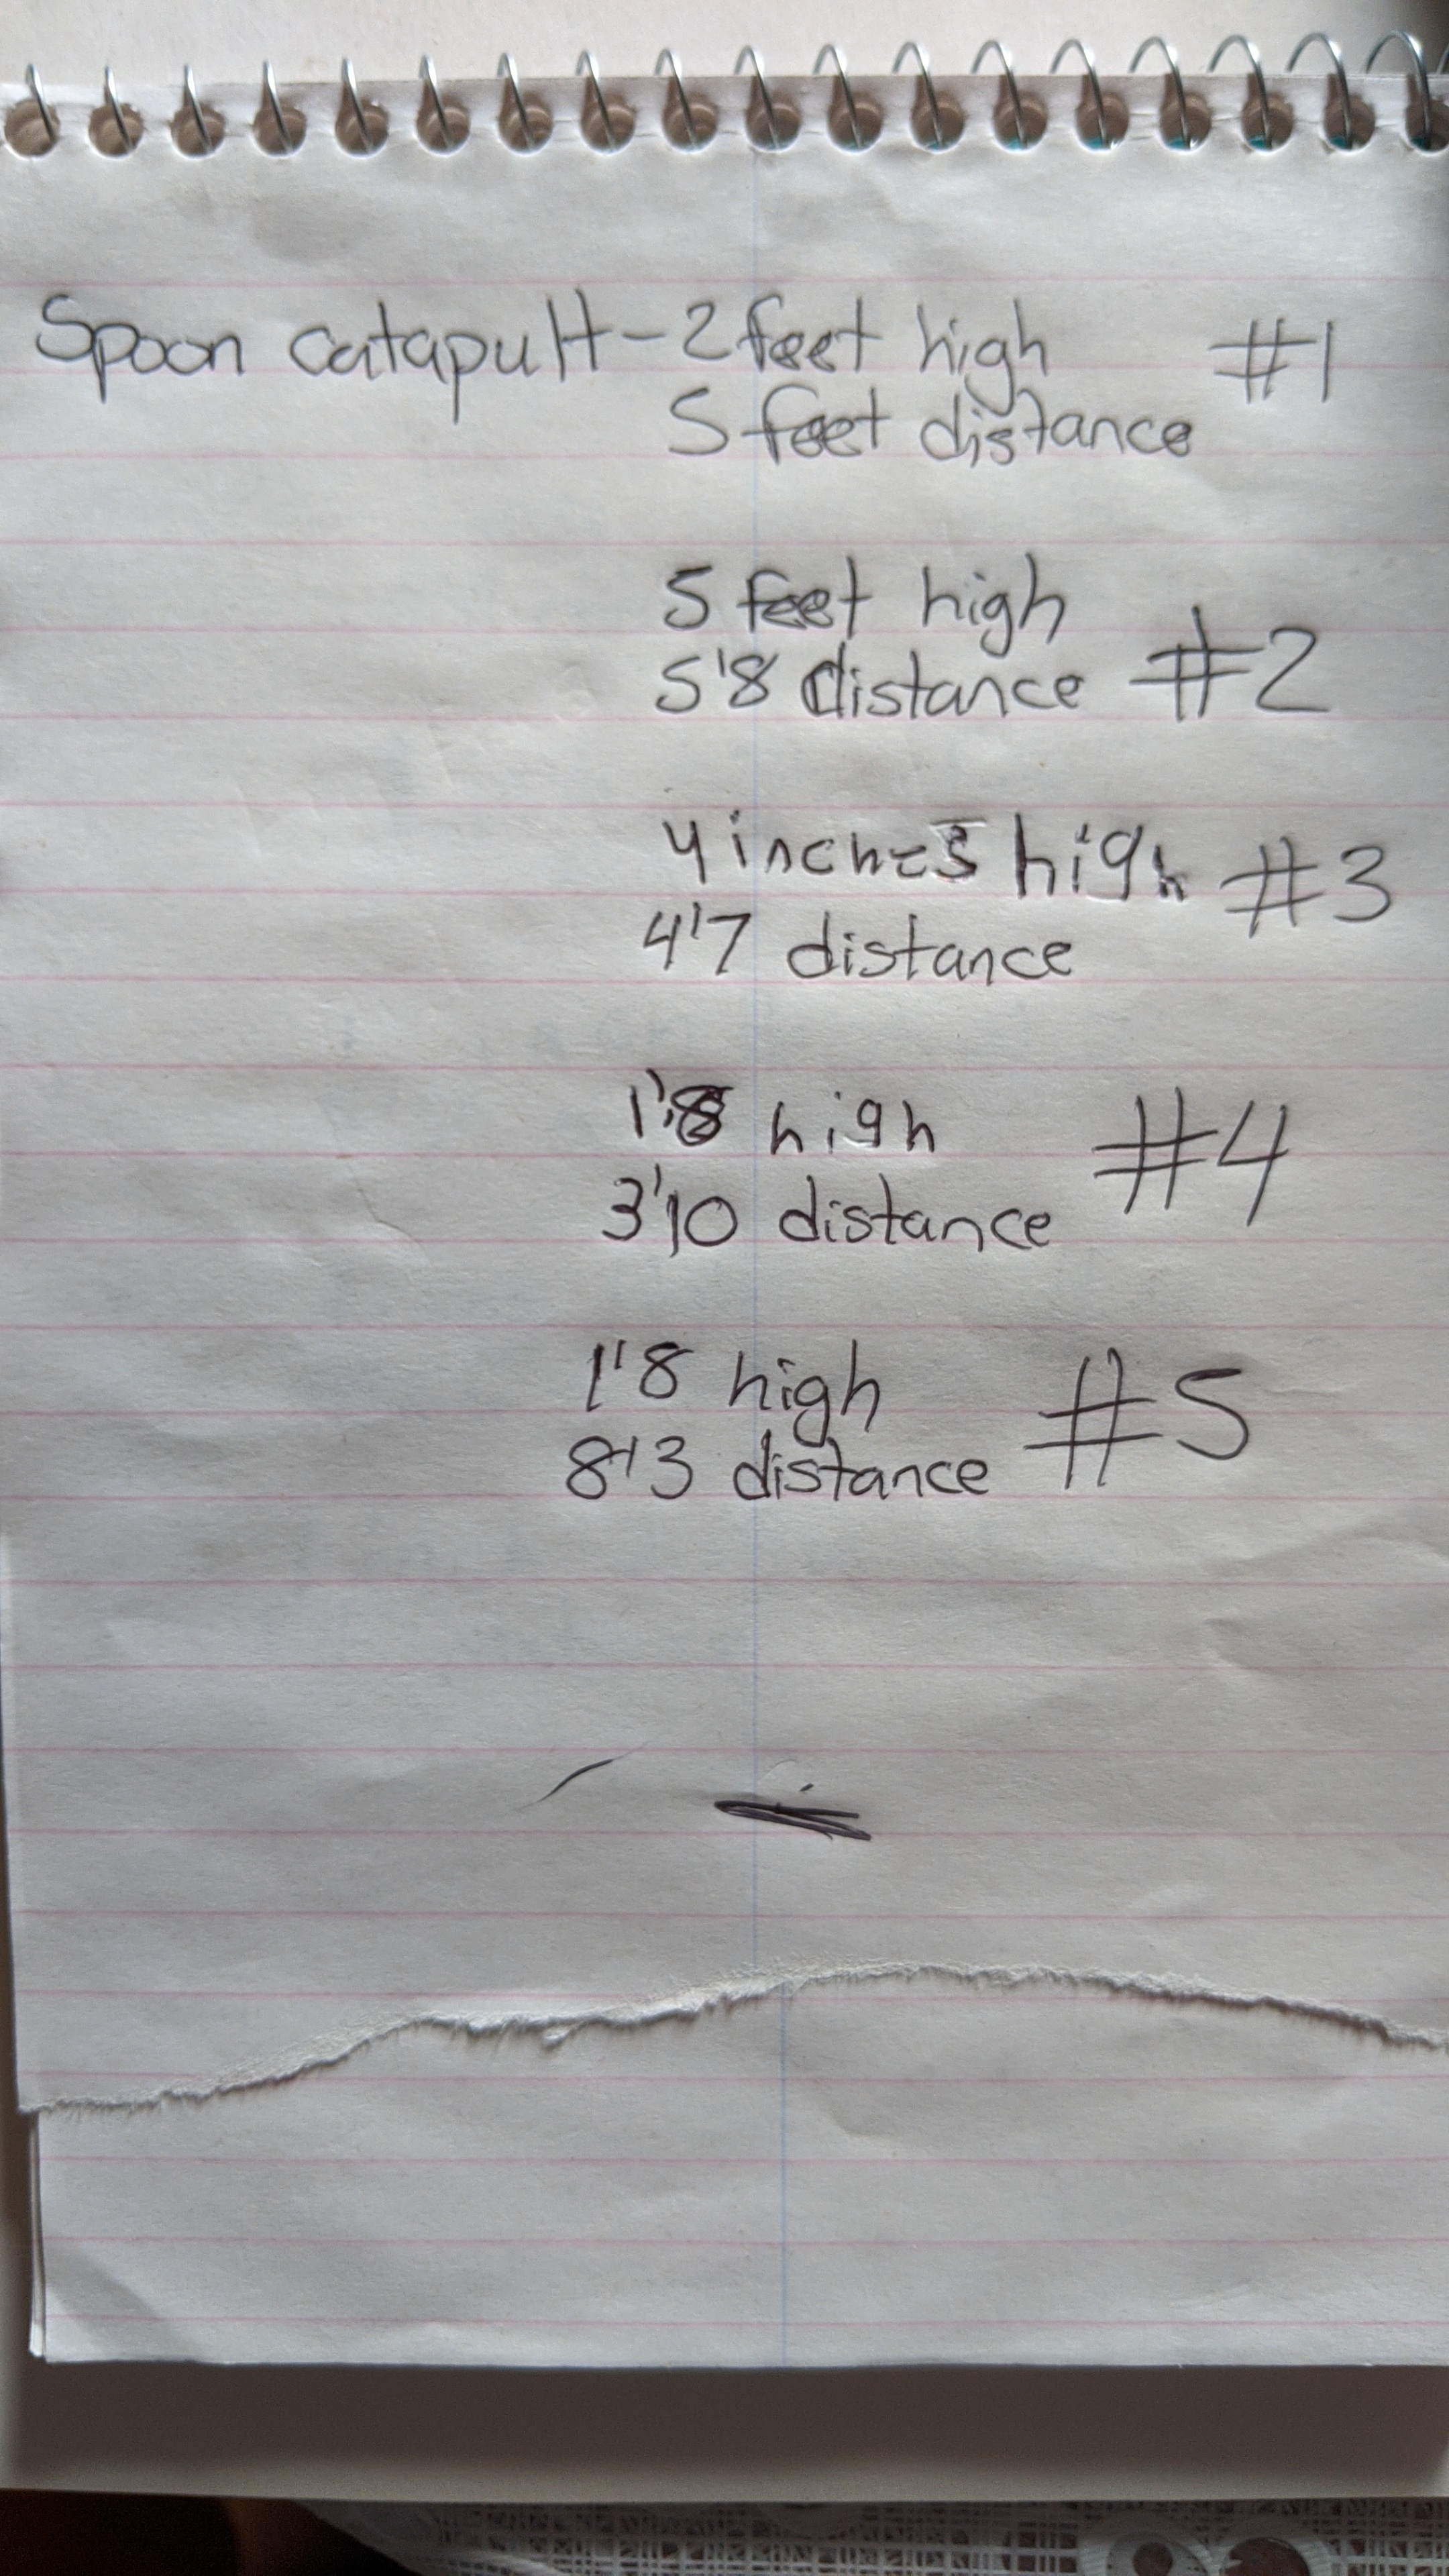 Spoon catapult - 2 feet high #1
5 feet distance
5 feet high
5'8 distance #2
4 inches high #3
4'7 distance
1'8 high #4
3'10 distance
1'8 high #5
8'3 distance